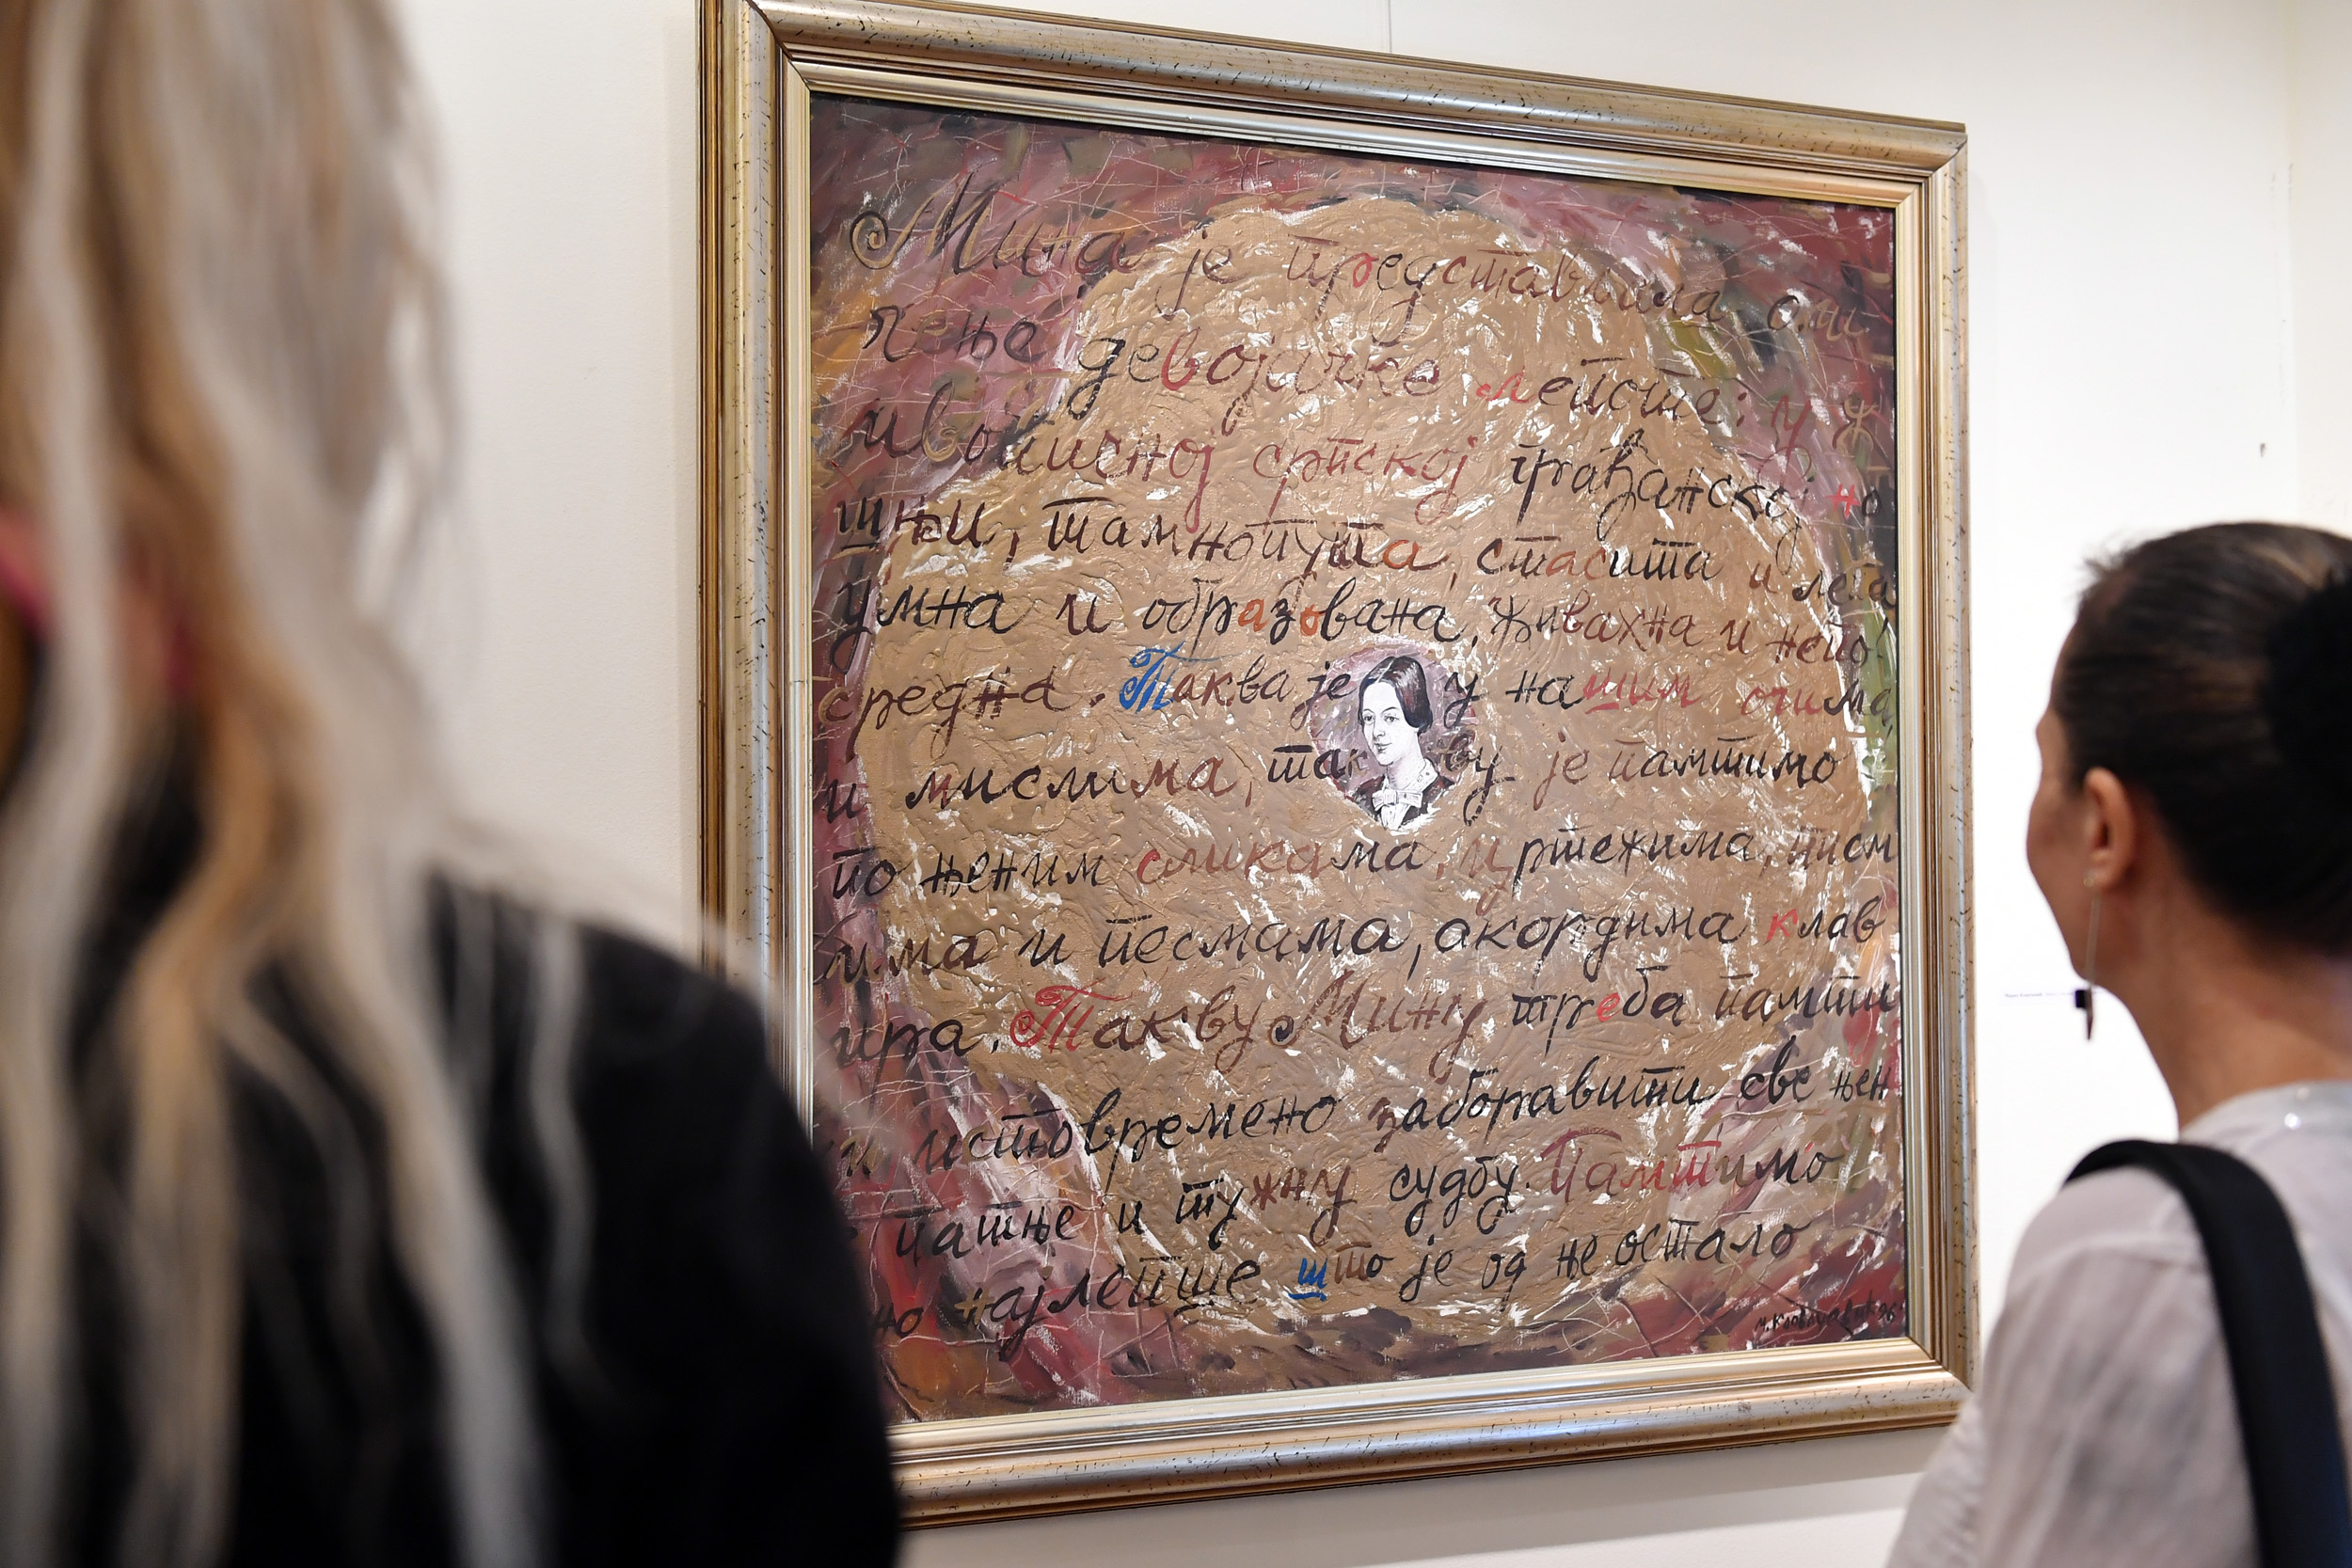 Мина је представљала оли
чење девојачке лепоте: у ж
ивописној српској грађанској но
шњи, тамнопута, стасита и лепа
умна и образована, живахна и непо
средна. Таква је у нашим очима
и мислима, такву је памтимо
по њеним сликама, цртежима, писм
има и песмама, акордима клав
ира. Такву Мину треба памти
ти, истовремено заборавити све њен
е патње и тужну судбу. Памтимо
но најлепше што је од ње остало